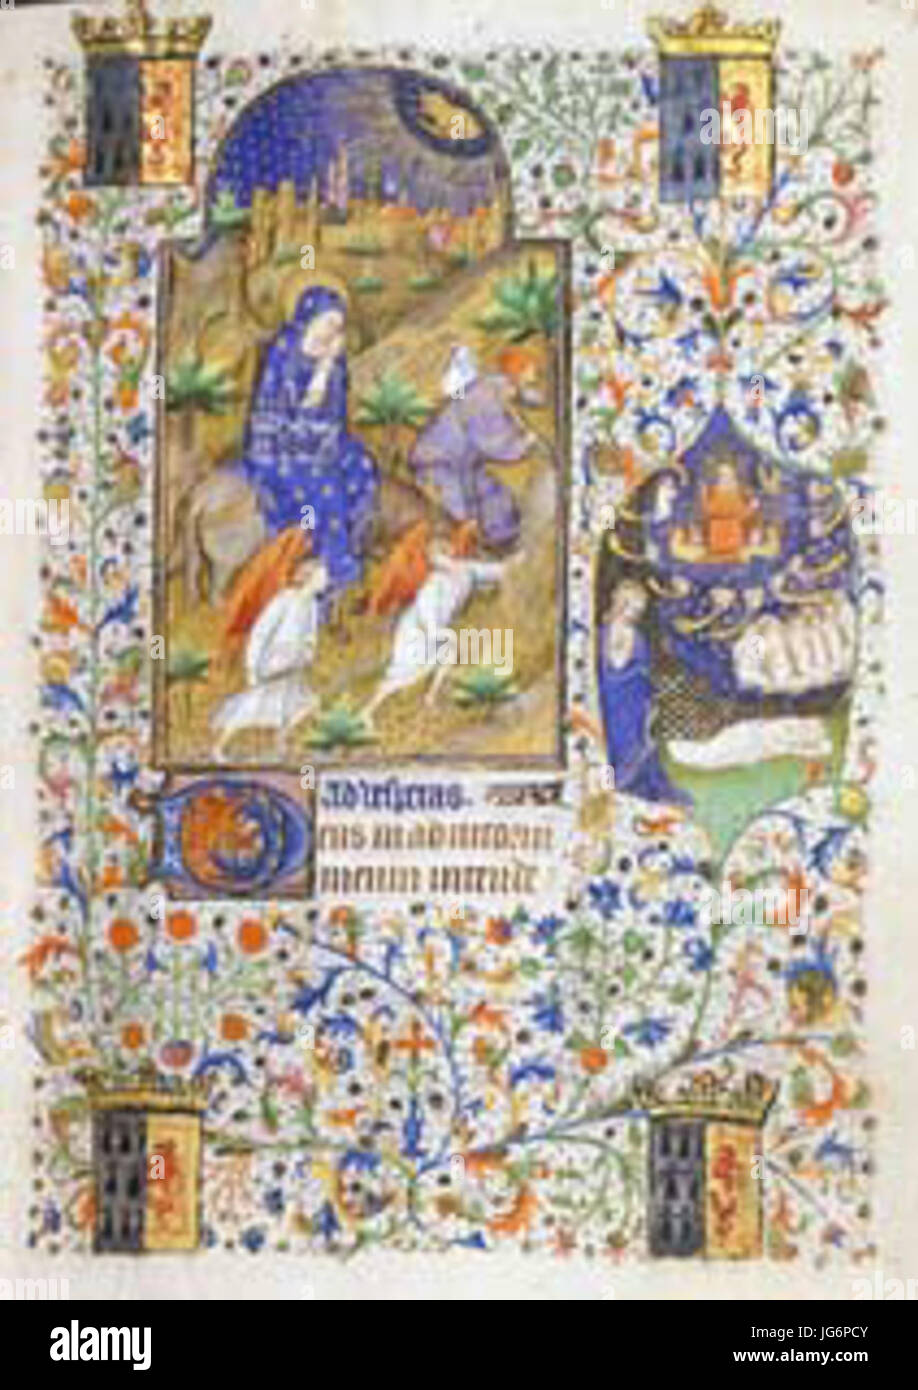 Ad vesperas.
eus in adiutorium
meum intende
alamy stock photo
JG6PCY
www.alamy.com